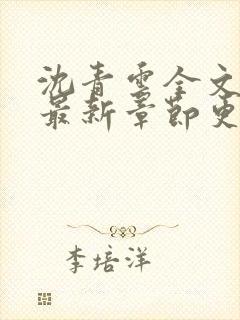 沈青云全文
最新章節更
李培洋